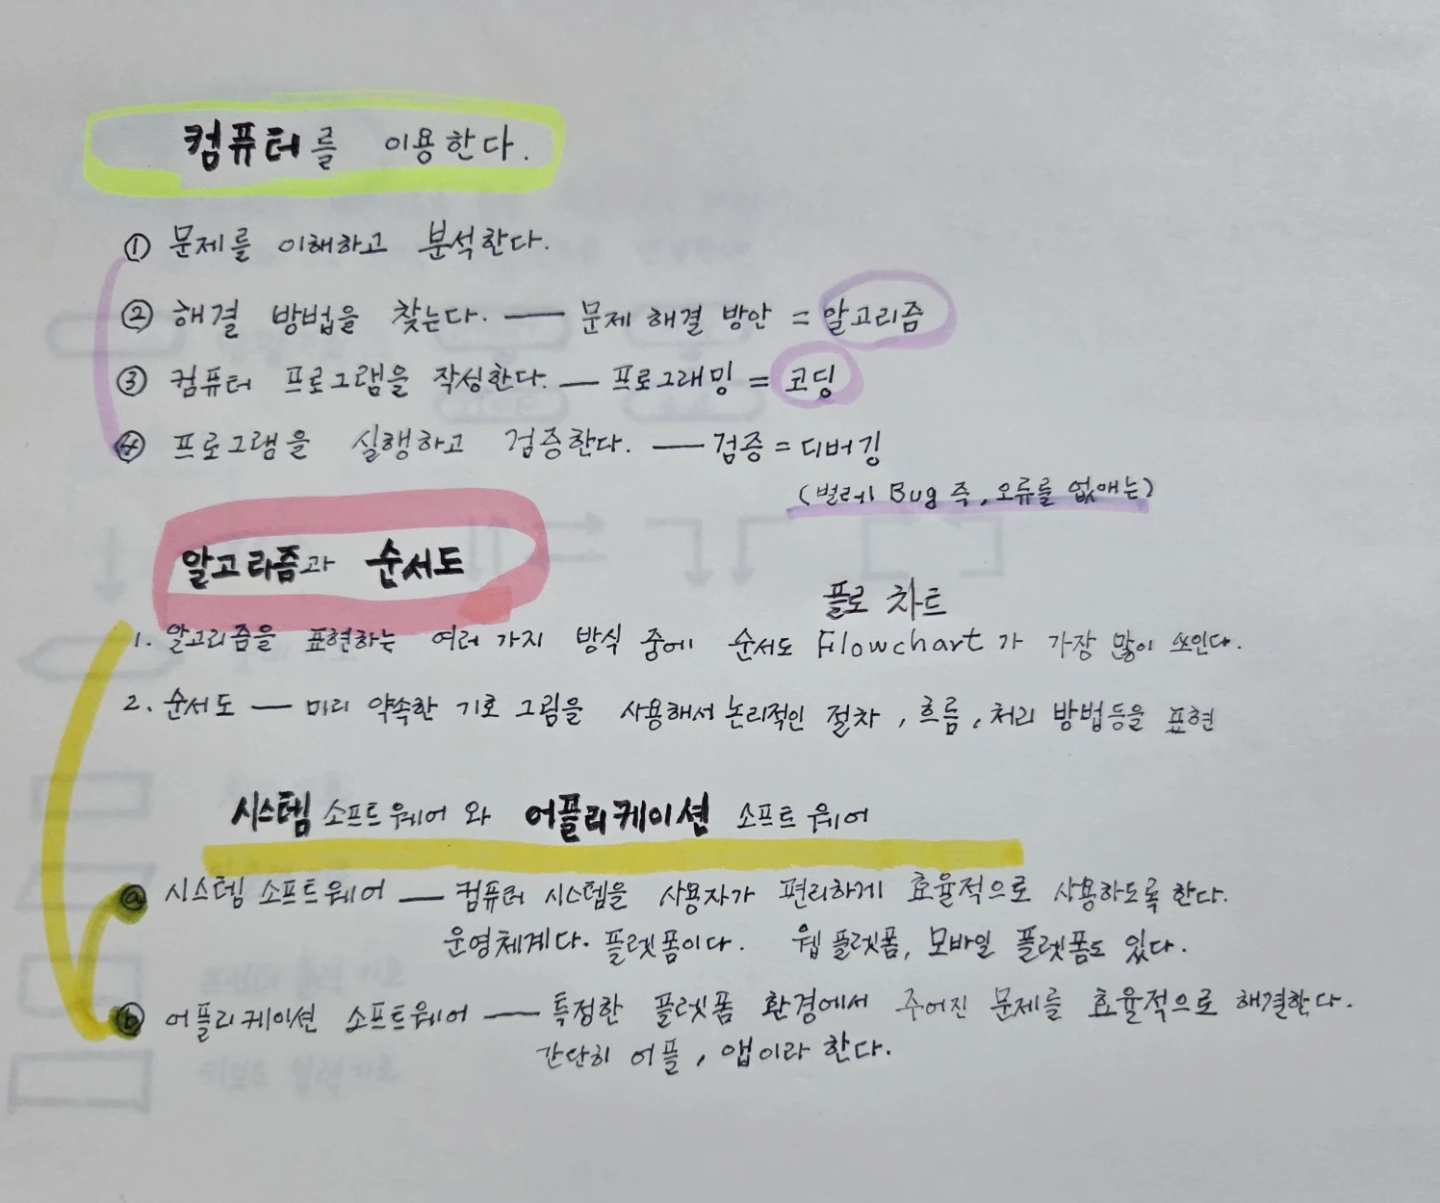 컴퓨터를 이용한다.
① 문제를 이해하고 분석한다.
② 해결 방법을 찾는다. — 문제 해결 방안 = 알고리즘
③ 컴퓨터 프로그램을 작성한다. — 프로그래밍 = 코딩
④ 프로그램을 실행하고 검증한다. — 검증 = 디버깅
(벌레 Bug 즉, 오류를 없애는)
알고리즘과 순서도
플로 차트
1. 알고리즘을 표현하는 여러 가지 방식 중에 순서도 Flowchart가 가장 많이 쓰인다.
2. 순서도 — 미리 약속한 기호 그림을 사용해서 논리적인 절차, 흐름, 처리 방법등을 표현
시스템 소프트웨어와 어플리케이션 소프트웨어
ⓐ 시스템 소프트웨어 — 컴퓨터 시스템을 사용자가 편리하게 효율적으로 사용하도록 한다.
운영체계다. 플렛폼이다. 웹 플렛폼, 모바일 플렛폼도 있다.
ⓑ 어플리케이션 소프트웨어 — 특정한 플렛폼 환경에서 주어진 문제를 효율적으로 해결한다.
간단히 어플, 앱이라 한다.